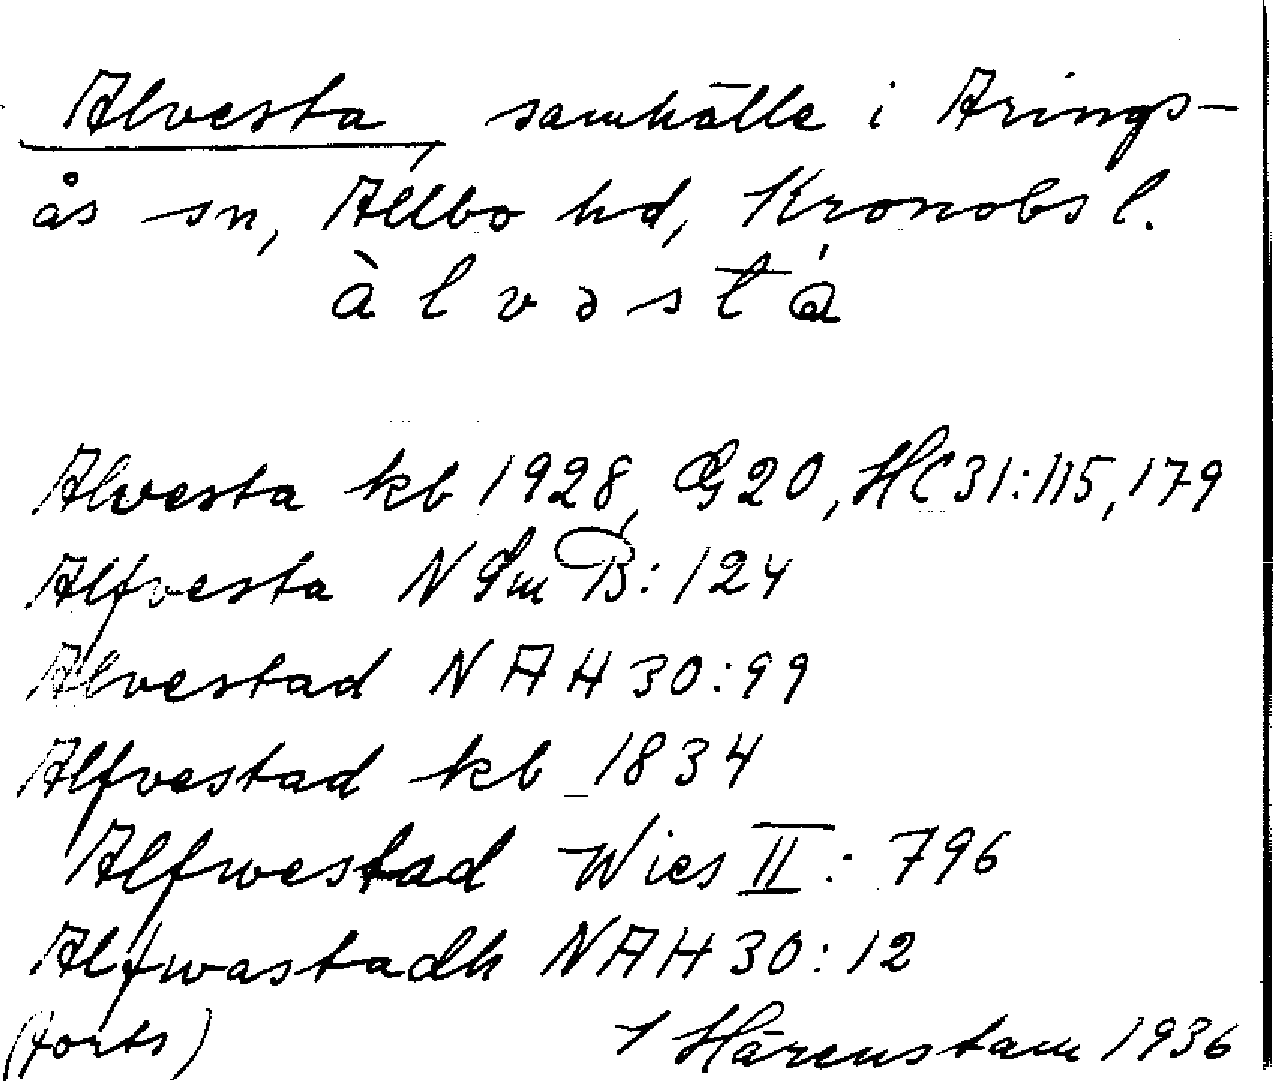 Alvesta, samhälle i Arings-
ås sn, Allbo hd, Kronobs l.
à l v ə s t á
Alvesta kb 1928, G20, HC31:115,179
Alfvesta N Sm B:124
Alvestad NAH30:99
Alfvestad kb 1834
Alfwestad Wies II: 796
Alfwastadh NAH30:12
(forts) Härenstam 1936